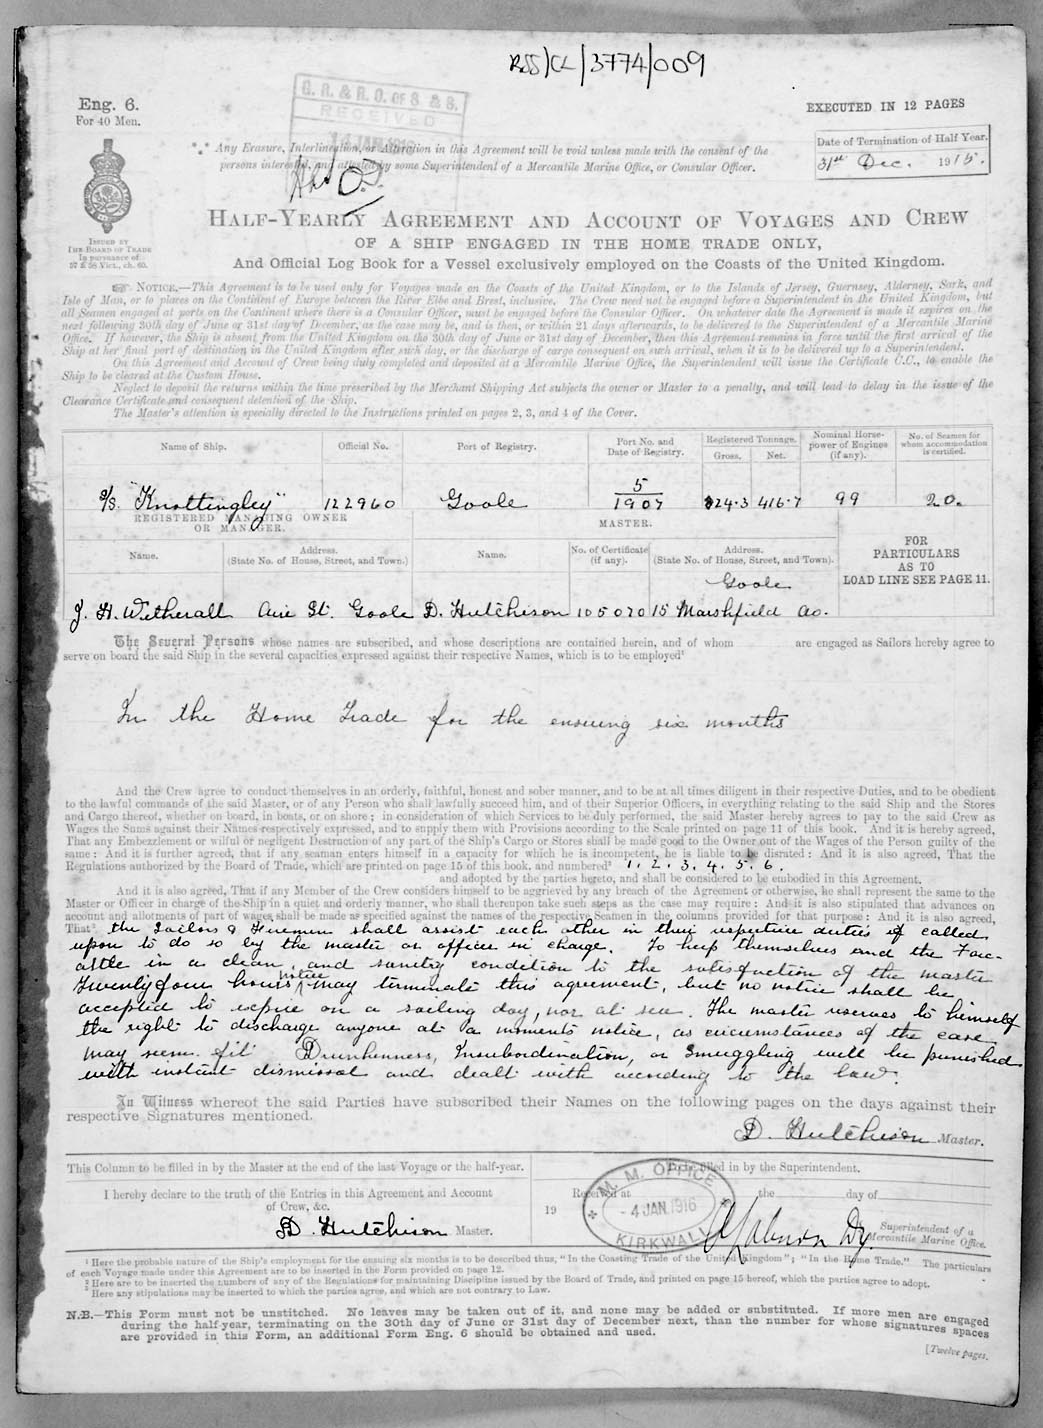 RSS/CL/3774/009
Eng. 6.
For 40 Men.
EXECUTED IN 12 PAGES
G. R. & R. O. OF S. & S.
RECEIVED
Date of Termination of Half Year.
31st Dec. 1915.
Any Erasure, Interlineation, or Alteration in this Agreement will be void unless made with the consent of the
persons interested, and attested by some Superintendent of a Mercantile Marine Office, or Consular Officer.
ISSUED BY
THE BOARD OF TRADE
In pursuance of
57 & 58 Vict., ch. 60.
HALF-YEARLY AGREEMENT AND ACCOUNT OF VOYAGES AND CREW
OF A SHIP ENGAGED IN THE HOME TRADE ONLY,
And Official Log Book for a Vessel exclusively employed on the Coasts of the United Kingdom.
NOTICE.—This Agreement is to be used only for Voyages made on the Coasts of the United Kingdom, or to the Islands of Jersey, Guernsey, Alderney, Sark, and
Isle of Man, or to places on the Continent of Europe between the River Elbe and Brest, inclusive. The Crew need not be engaged before a Superintendent in the United Kingdom, but
all Seamen engaged at ports on the Continent where there is a Consular Officer, must be engaged before the Consular Officer. On whatever date the Agreement is made it expires on the
next following 30th day of June or 31st day of December, as the case may be, and is then, or within 21 days afterwards, to be delivered to the Superintendent of a Mercantile Marine
Office. If however, the Ship is absent from the United Kingdom on the 30th day of June or 31st day of December, then this Agreement remains in force until the first arrival of the
Ship at her final port of destination in the United Kingdom after such day, or the discharge of cargo consequent on such arrival, when it is to be delivered up to a Superintendent.
On this Agreement and Account of Crew being duly completed and deposited at a Mercantile Marine Office, the Superintendent will issue the Certificate C.C., to enable the
Ship to be cleared at the Custom House.
Neglect to deposit the returns within the time prescribed by the Merchant Shipping Act subjects the owner or Master to a penalty, and will lead to delay in the issue of the
Clearance Certificate and consequent detention of the Ship.
The Master's attention is specially directed to the Instructions printed on pages 2, 3, and 4 of the Cover.
Name of Ship. Official No. Port of Registry. Port No. and Date of Registry. Registered Tonnage. Gross. Net. Nominal Horse-power of Engines (if any). No. of Seamen for whom accommodation is certified.
s/s. "Knottingley" 122960 Goole 5/1907 824.3 416.7 99 20.
REGISTERED MANAGING OWNER
OR MANAGER.
MASTER.
FOR
PARTICULARS
AS TO
LOAD LINE SEE PAGE 11.
Name. Address. (State No. of House, Street, and Town.) Name. No. of Certificate (if any). Address. (State No. of House, Street, and Town.)
Goole
J. H. Wetherall Aire St. Goole D. Hutchison 105070 15 Marshfield Av.
The Several Persons whose names are subscribed, and whose descriptions are contained herein, and of whom are engaged as Sailors hereby agree to
serve on board the said Ship in the several capacities expressed against their respective Names, which is to be employed¹
In the Home Trade for the ensuing six months
And the Crew agree to conduct themselves in an orderly, faithful, honest and sober manner, and to be at all times diligent in their respective Duties, and to be obedient
to the lawful commands of the said Master, or of any Person who shall lawfully succeed him, and of their Superior Officers, in everything relating to the said Ship and the Stores
and Cargo thereof, whether on board, in boats, or on shore; in consideration of which Services to be duly performed, the said Master hereby agrees to pay to the said Crew as
Wages the Sums against their Names respectively expressed, and to supply them with Provisions according to the Scale printed on page 11 of this book. And it is hereby agreed,
That any Embezzlement or wilful or negligent Destruction of any part of the Ship's Cargo or Stores shall be made good to the Owner out of the Wages of the Person guilty of the
same: And it is further agreed, that if any seaman enters himself in a capacity for which he is incompetent, he is liable to be disrated: And it is also agreed, That the
Regulations authorized by the Board of Trade, which are printed on page 15 of this book, and numbered² 1. 2. 3. 4. 5. 6.
and adopted by the parties hereto, and shall be considered to be embodied in this Agreement.
And it is also agreed, That if any Member of the Crew considers himself to be aggrieved by any breach of the Agreement or otherwise, he shall represent the same to the
Master or Officer in charge of the Ship in a quiet and orderly manner, who shall thereupon take such steps as the case may require: And it is also stipulated that advances on
account and allotments of part of wages shall be made as specified against the names of the respective Seamen in the columns provided for that purpose: And it is also agreed,
That³ the Sailors & Firemen shall assist each other in their respective duties if called
upon to do so by the master or officer in charge. To keep themselves and the Foc-
astle in a clean, and sanitry condition to the satisfaction of the master
Twentyfour hours notice may terminate this agreement, but no notice shall be
accepted to expire on a sailing day, nor at sea. The master reserves to himself
the right to discharge anyone at a moments notice, as circumstances of the case
may seem fit. Drunkenness, Insubordination, or Smuggling will be punished
with instant dismissal and dealt with according to the law.
In Witness whereof the said Parties have subscribed their Names on the following pages on the days against their
respective Signatures mentioned.
D. Hutchison Master.
This Column to be filled in by the Master at the end of the last Voyage or the half-year.
To be filled in by the Superintendent.
I hereby declare to the truth of the Entries in this Agreement and Account
of Crew, &c.
D. Hutchison Master.
Received at the day of
19
M. M. OFFICE
- 4 JAN 1916
KIRKWALL
Dy. Superintendent of a
Mercantile Marine Office.
¹ Here the probable nature of the Ship's employment for the ensuing six months is to be described thus, "In the Coasting Trade of the United Kingdom"; "In the Home Trade." The particulars
of each Voyage made under this Agreement are to be inserted in the Form provided on page 12.
² Here are to be inserted the numbers of any of the Regulations for maintaining Discipline issued by the Board of Trade, and printed on page 15 hereof, which the parties agree to adopt.
³ Here any stipulations may be inserted to which the parties agree, and which are not contrary to Law.
N.B.—This Form must not be unstitched. No leaves may be taken out of it, and none may be added or substituted. If more men are engaged
during the half-year, terminating on the 30th day of June or 31st day of December next, than the number for whose signatures spaces
are provided in this Form, an additional Form Eng. 6 should be obtained and used.
[Twelve pages.